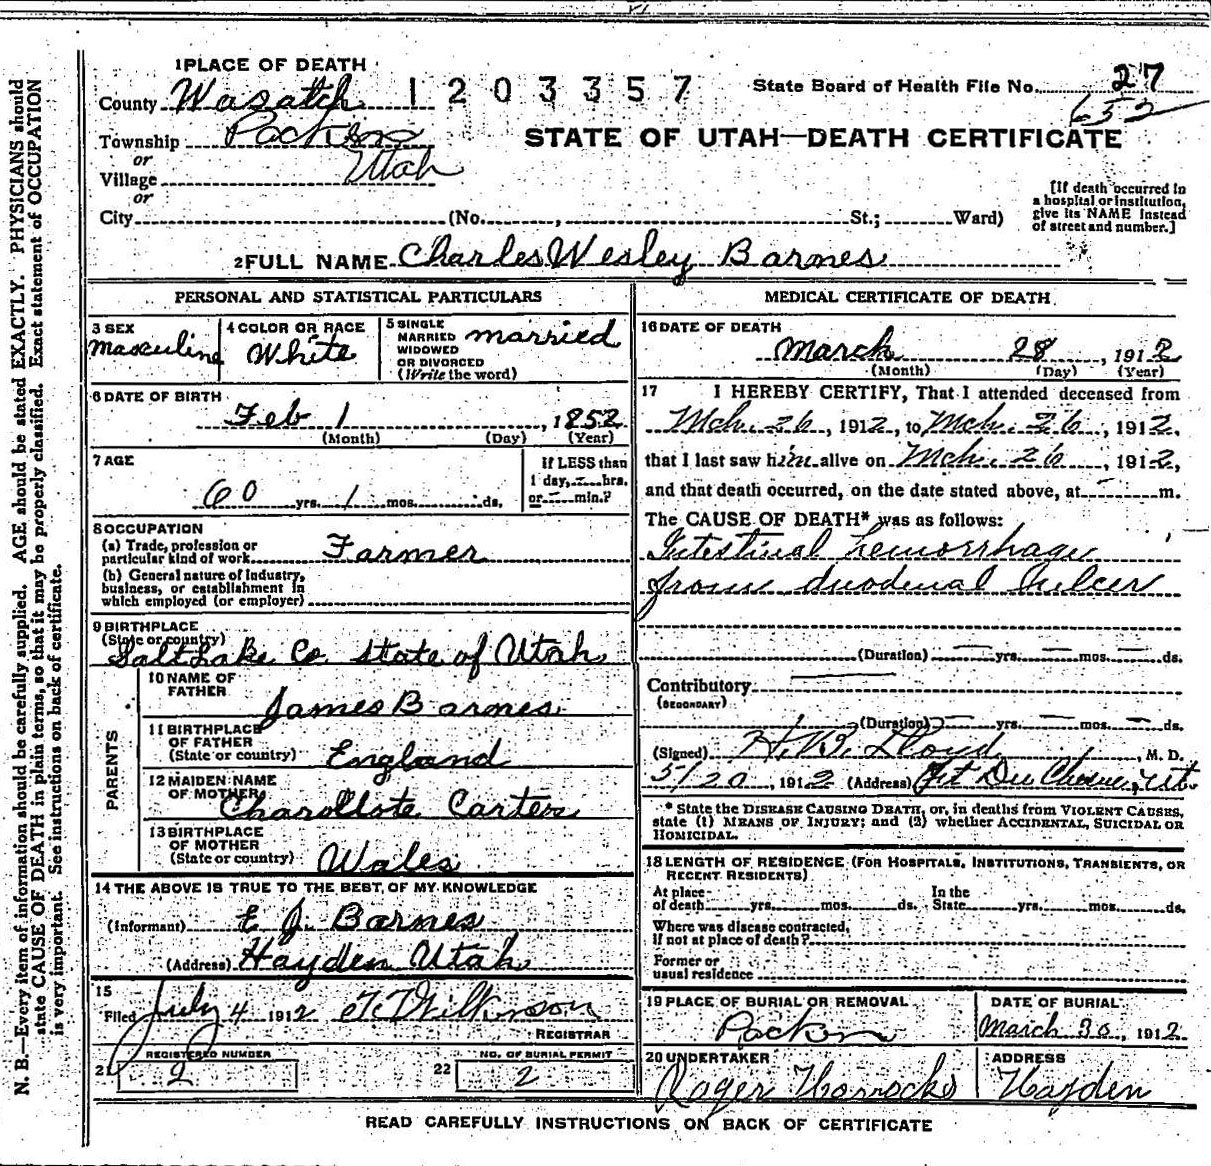 N. B.—Every item of information should be carefully supplied. AGE should be stated EXACTLY. PHYSICIANS should
state CAUSE OF DEATH in plain terms, so that it may be properly classified. Exact statement of OCCUPATION
is very important. See instructions on back of certificate.
1 PLACE OF DEATH
County Wasatch
1203357
State Board of Health File No. 27
652
Township
or
Utah
STATE OF UTAH—DEATH CERTIFICATE
Village
or
City (No. , St.; Ward)
[If death occurred in
a hospital or institution,
give its NAME instead
of street and number.]
2 FULL NAME Charles Wesley Barnes
PERSONAL AND STATISTICAL PARTICULARS
3 SEX
Masculine
4 COLOR OR RACE
White
5 SINGLE
MARRIED
WIDOWED
OR DIVORCED
(Write the word)
married
6 DATE OF BIRTH
Feb 1, 1852
(Month) (Day) (Year)
7 AGE
60 yrs. 1 mos. ds.
If LESS than
1 day, — hrs.
or — min.?
8 OCCUPATION
(a) Trade, profession or
particular kind of work Farmer
(b) General nature of industry,
business, or establishment in
which employed (or employer)
9 BIRTHPLACE
(State or country)
Salt Lake Co. State of Utah
PARENTS
10 NAME OF
FATHER
James Barnes
11 BIRTHPLACE
OF FATHER
(State or country) England
12 MAIDEN NAME
OF MOTHER
Charollote Carter
13 BIRTHPLACE
OF MOTHER
(State or country) Wales
14 THE ABOVE IS TRUE TO THE BEST OF MY KNOWLEDGE
(Informant) E J. Barnes
(Address) Hayden Utah
15
Filed July 4 1912 Wilkinson
REGISTRAR
21 REGISTERED NUMBER
2
22 NO. OF BURIAL PERMIT
2
MEDICAL CERTIFICATE OF DEATH
16 DATE OF DEATH
March 28, 1912
(Month) (Day) (Year)
17 I HEREBY CERTIFY, That I attended deceased from
Mch. 26, 1912, to Mch. 26, 1912,
that I last saw him alive on Mch. 26, 1912,
and that death occurred, on the date stated above, at m.
The CAUSE OF DEATH* was as follows:
Intestinal hemorrhage
from duodenal ulcer
(Duration) — yrs. — mos. — ds.
Contributory
(SECONDARY)
(Duration) — yrs. — mos. — ds.
(Signed) H. B. Lloyd, M. D.
5/20, 1912 (Address) Ft Du Chesne, Ut.
* State the DISEASE CAUSING DEATH, or, in deaths from VIOLENT CAUSES,
state (1) MEANS OF INJURY; and (2) whether ACCIDENTAL, SUICIDAL OR
HOMICIDAL.
18 LENGTH OF RESIDENCE (FOR HOSPITALS, INSTITUTIONS, TRANSIENTS, OR
RECENT RESIDENTS)
At place
of death yrs. mos. ds.
In the
State yrs. mos. ds.
Where was disease contracted,
if not at place of death?
Former or
usual residence
19 PLACE OF BURIAL OR REMOVAL
DATE OF BURIAL
March 30, 1912
20 UNDERTAKER
Roger Horrocks
ADDRESS
Hayden
READ CAREFULLY INSTRUCTIONS ON BACK OF CERTIFICATE